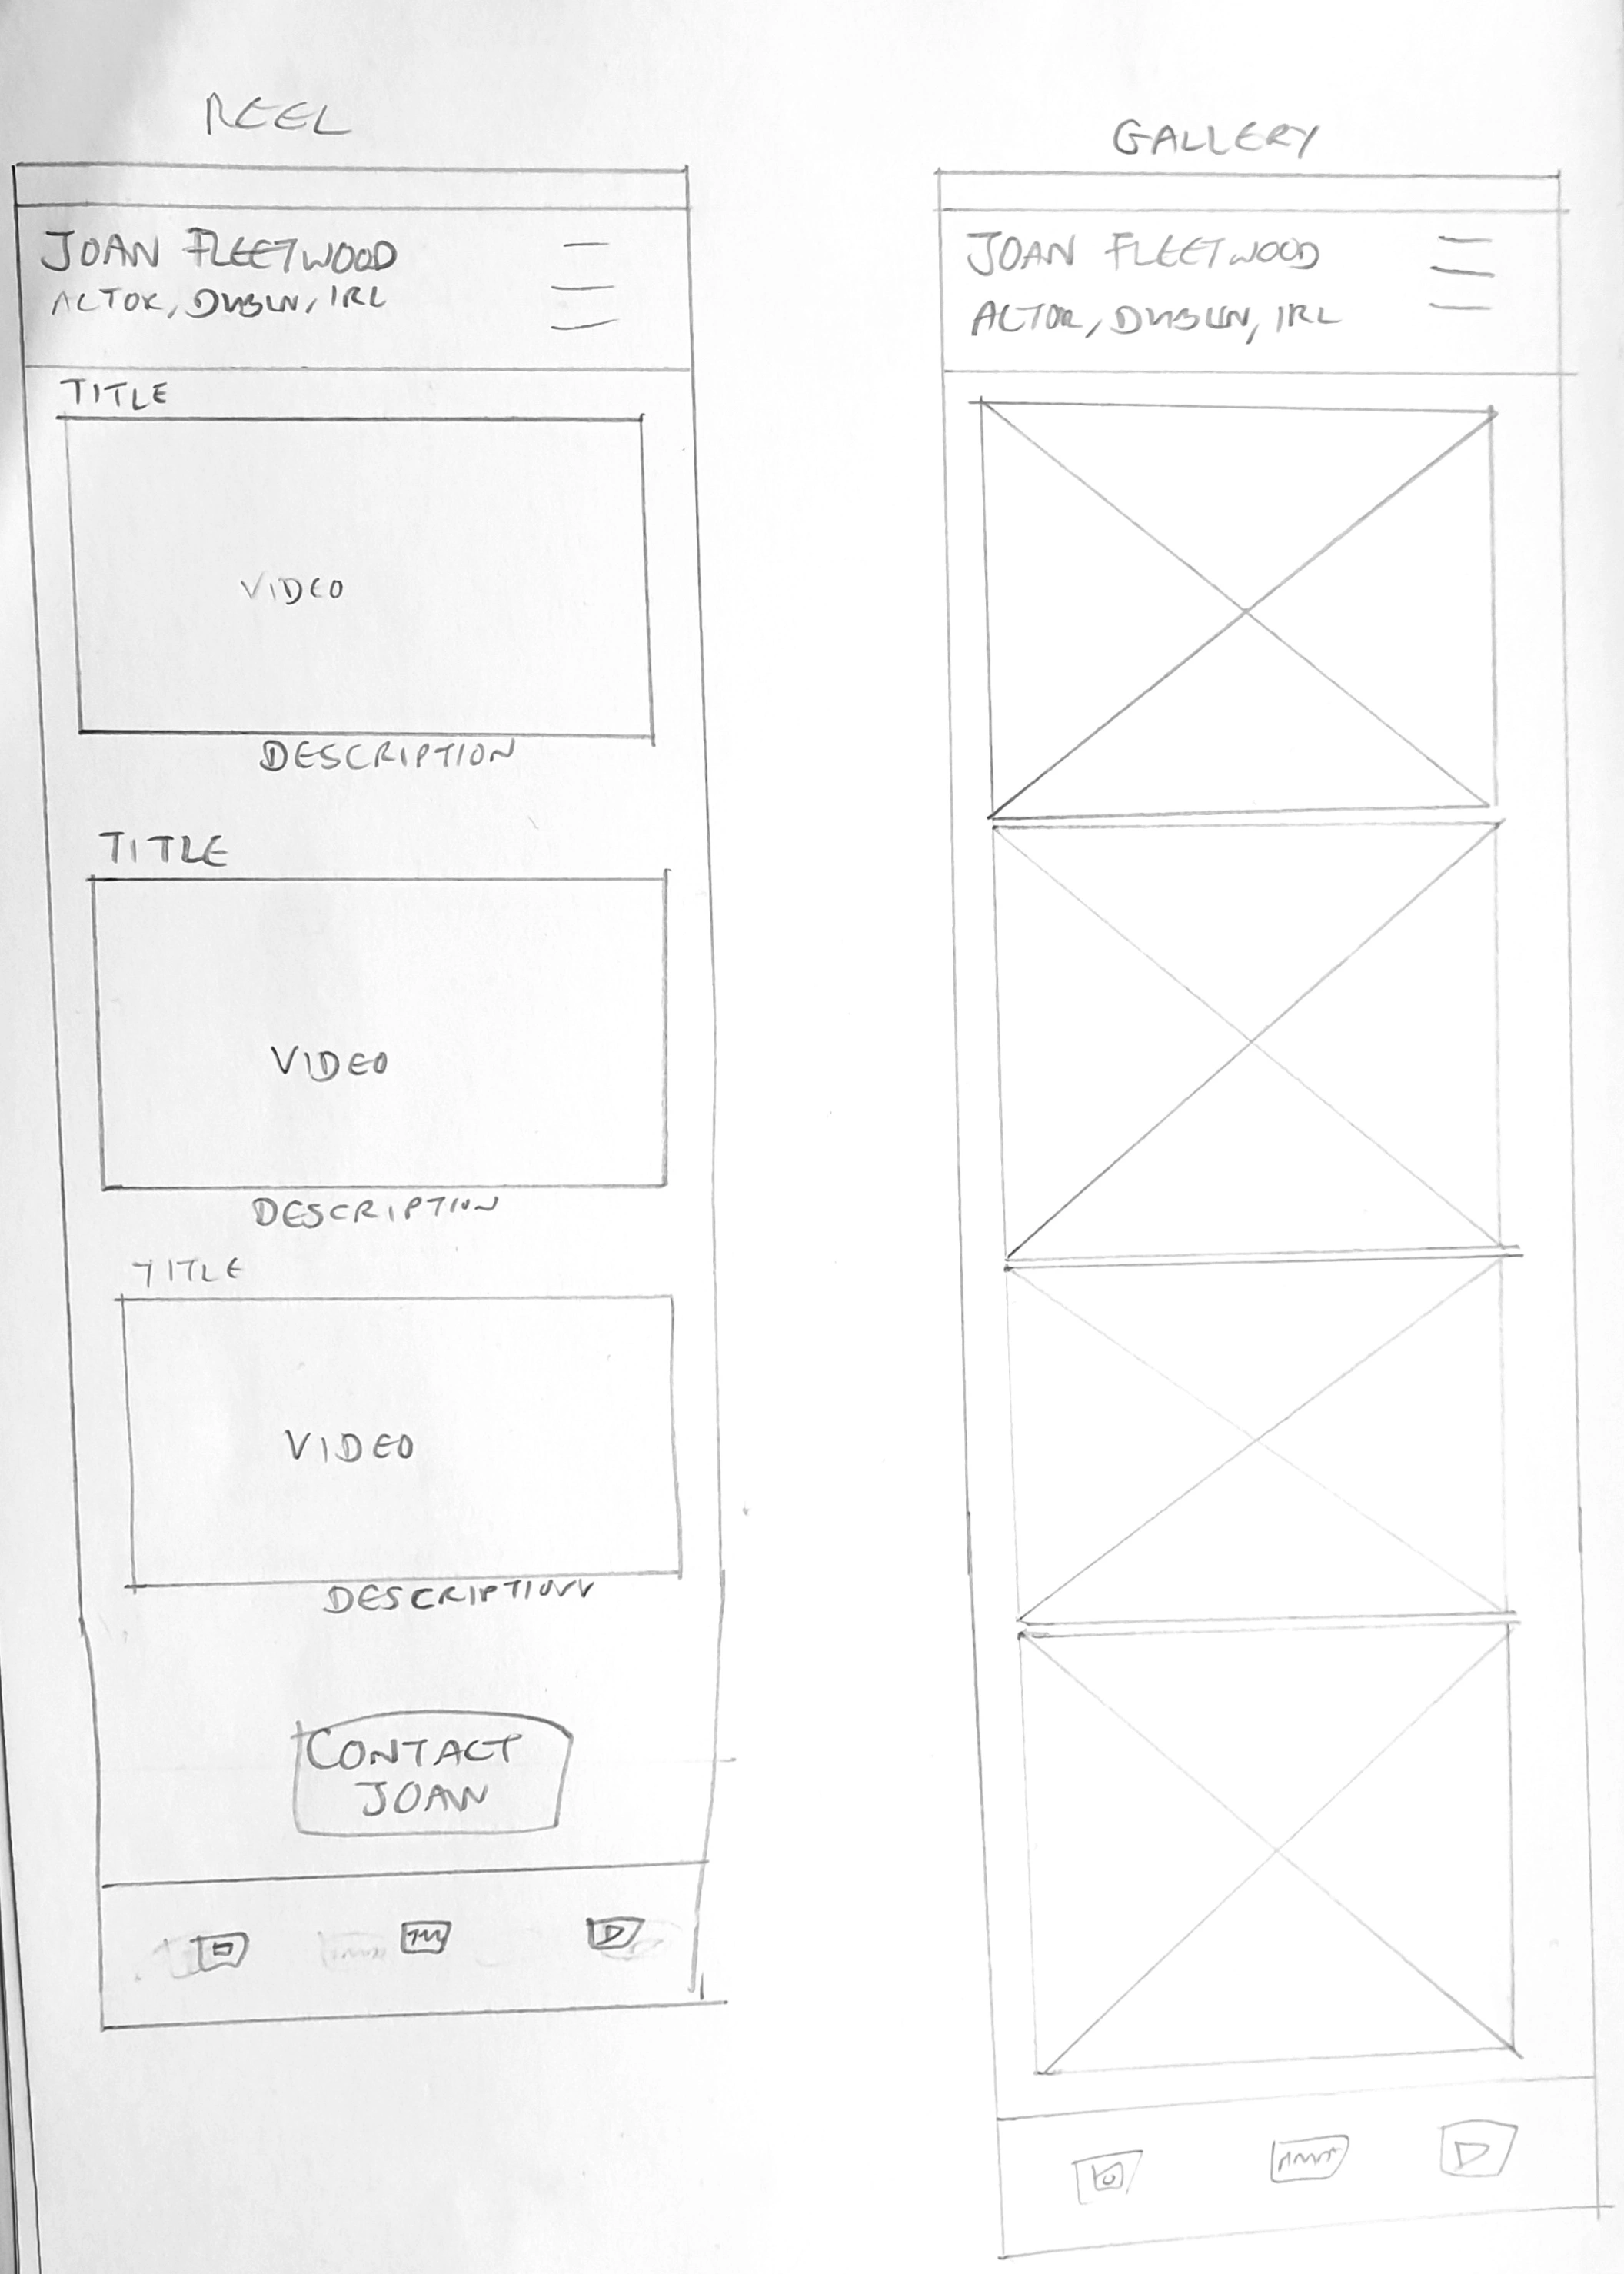 REEL
JOAN FLEETWOOD
ACTOR, DUBLIN, IRL
TITLE
VIDEO
DESCRIPTION
TITLE
VIDEO
DESCRIPTION
TITLE
VIDEO
DESCRIPTION
CONTACT
JOAN
GALLERY
JOAN FLEETWOOD
ACTOR, DUBLIN, IRL